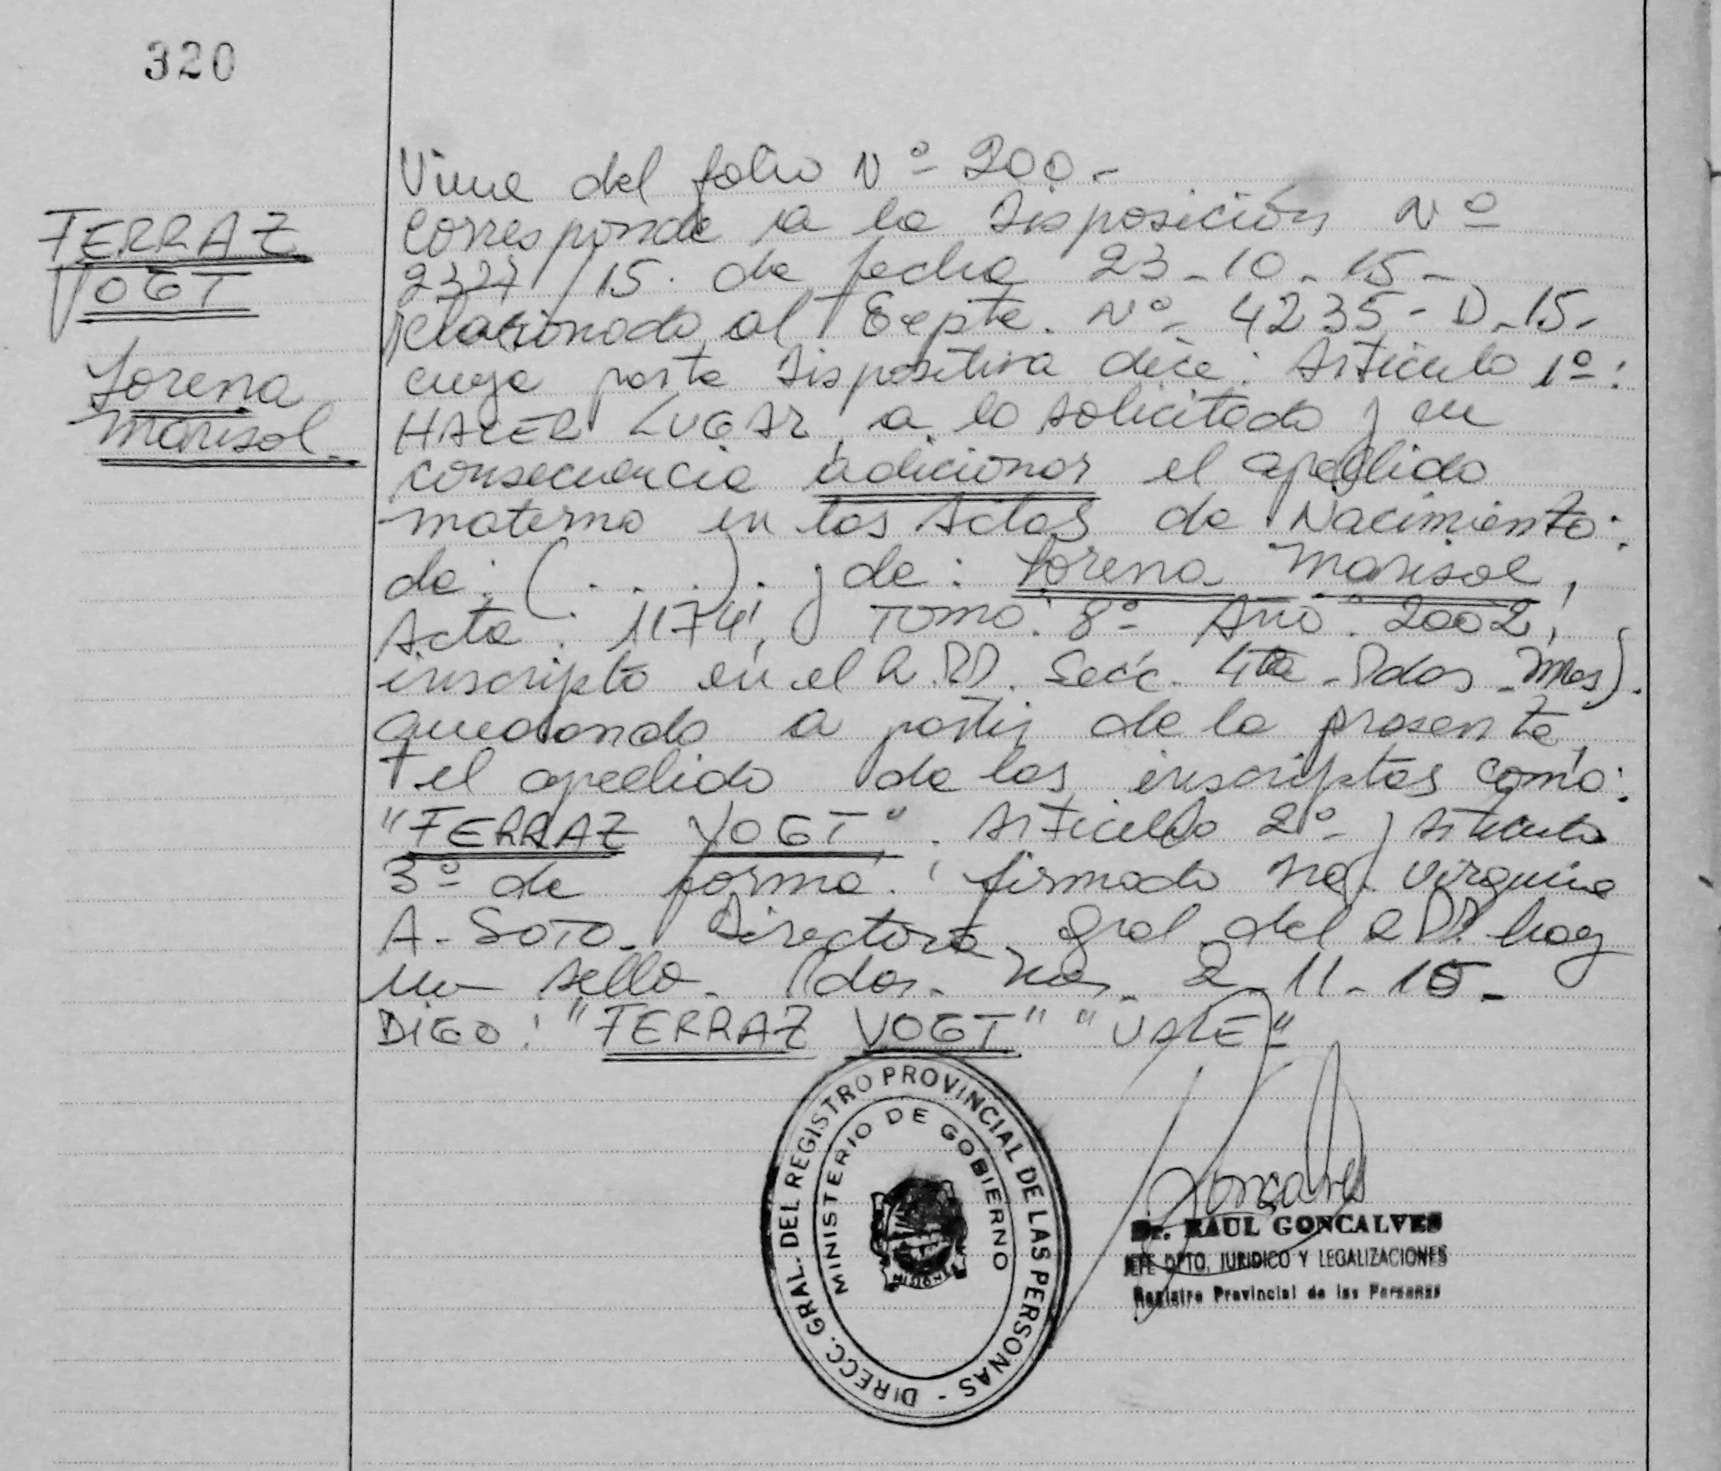 320
FERRAZ
VOGT
Lorena
Marisol.
Viene del folio Nº 200-
corresponde a la Disposición Nº
/15. de fecha 23-10-15-
relacionado al Expte. Nº 4235-D-15-
cuya parte Dispositiva dice: Artículo 1º:
HACER LUGAR a lo solicitado y en
consecuencia adicionar el apellido
materno en las Actas de Nacimiento:
de: (.....). y de: Lorena Marisol,
Acta: 1174, Tomo: 8º Año: 2002,
inscripto en el R.P.P. Secc. 4ta - Pdas - Mnes).
quedando a partir de la presente,
el apellido de las inscriptas como:
"FERRAZ VOGT". Artículo 2º y Artículo
3º de forma. firmado Virginia
A. SOTO. Directora gral. del R.P.P. hay
un sello. Pdas. Mnes. 2-11-15-
DIGO: "FERRAZ VOGT" "VALE"
DIRECC. GRAL. DEL REGISTRO PROVINCIAL DE LAS PERSONAS -
MINISTERIO DE GOBIERNO
MISIONES
Goncalves
Dr. RAUL GONCALVES
JEFE DPTO. JURIDICO Y LEGALIZACIONES
Registro Provincial de las Personas